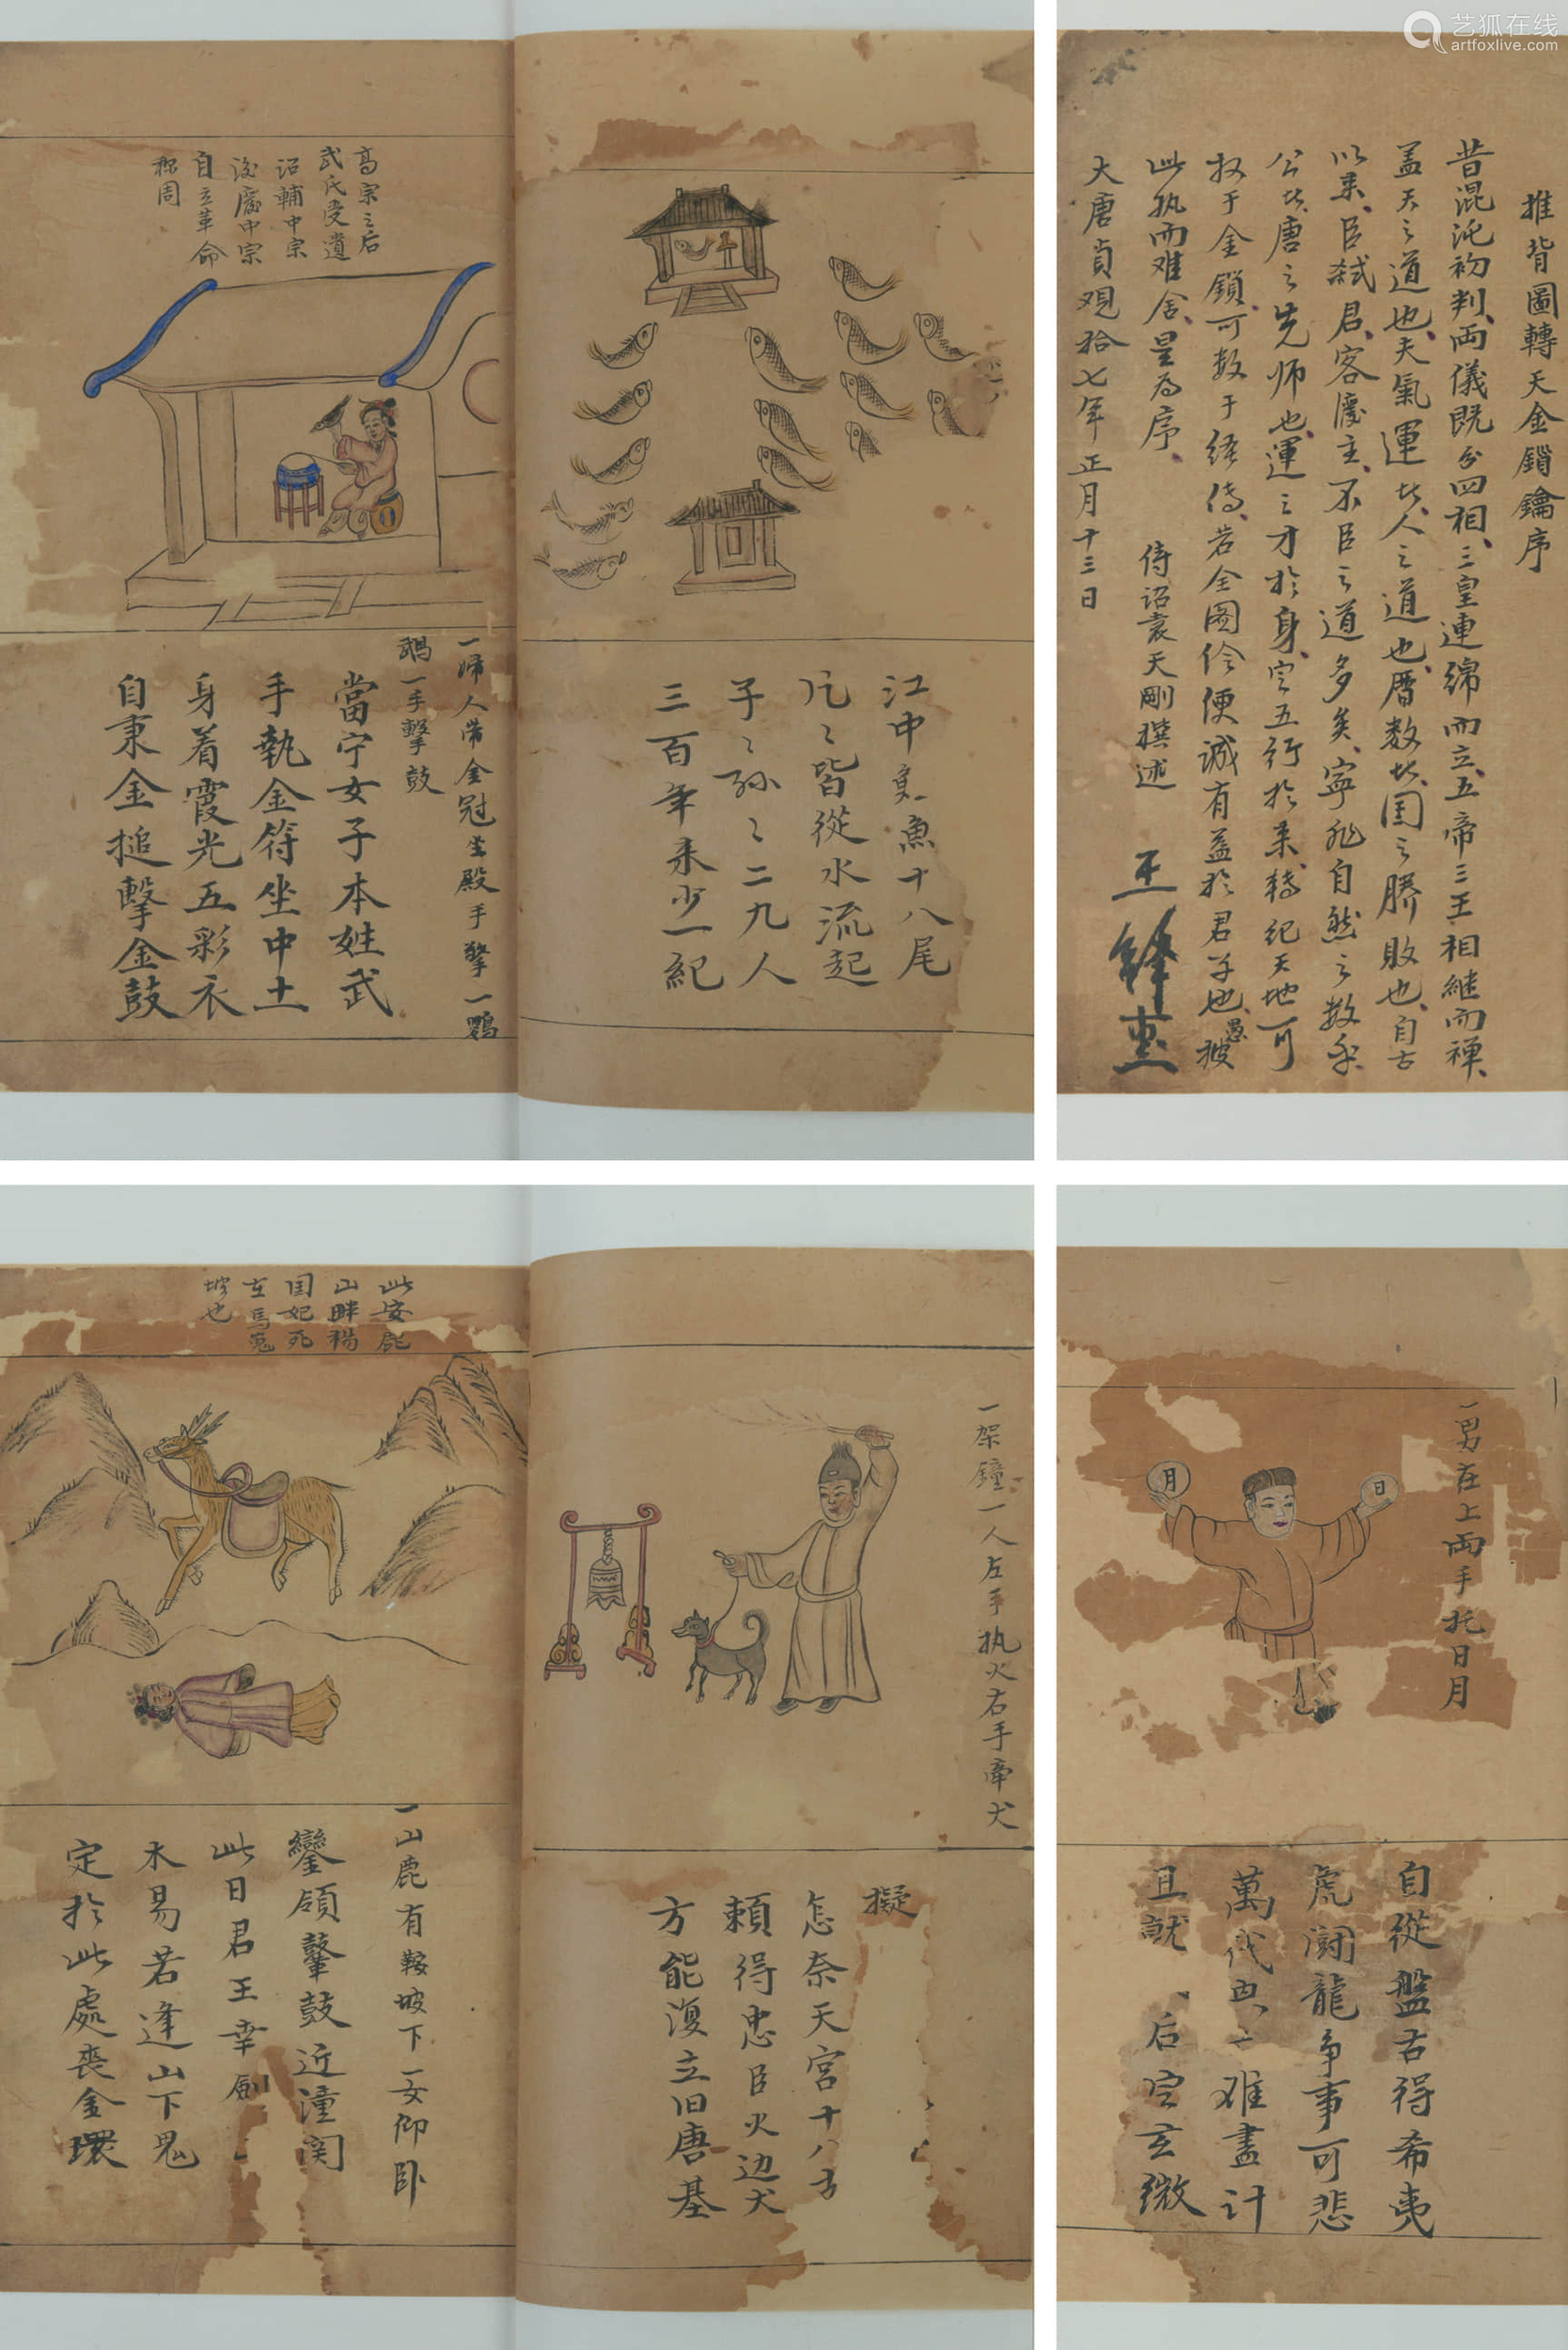 艺狐在线
artfoxlive.com
推背圖轉天金鎖鑰序
昔混沌初判、両儀既分四相、三皇連綿而立、五帝三王相継而禅、
盖天之道也、夫氣運者、人之道也、曆数者、国之勝敗也、自古
以来、臣弑君、客優主、不臣之道多矣、寧非自然之数乎、
公者、唐之先师也、運之才於身、定五行於来、转纪天地可
权于金鎖、可数于後傳、若全图伶便、誠有益於君子也、愚披
此执而难舍、是為序、
侍诏袁天剛撰述
大唐貞观拾七年正月十三日
江中魚十八尾
皆從水流起
子〻孙〻二九人
三百年来少一紀
高宗之后
武氏受遺
诏輔中宗
後廢中宗
自立革命
称周
一婦人帶金冠坐殿手擎一鸚
鵡一手擊鼓
當宁女子本姓武
手執金符坐中土
身着霞光五彩衣
自秉金搥擊金鼓
月
日
一男在上両手托日月
自從盤古得希夷
虎闘龍争事可悲
萬代興亡难盡計
且就 后定玄微
一架鐘一人左手执火右手牽犬
擬
怎奈天宫十八子
頼得忠臣火边犬
方能復立旧唐基
此安鹿
山畔楊
国妃死
在馬嵬
坡也
一山鹿有鞍坡下一女仰卧
鑾領鼙鼓近潼関
此日君王幸劍
木易若逢山下鬼
定於此處喪金環